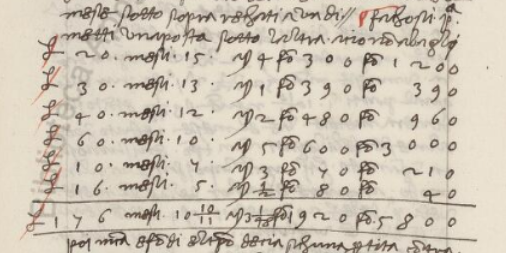 mese sotto sopra rechati a un di // fa chosi pª.
metti una posta sotto l altra acio non abagli
£ 20. mesi. 15. p 4 fo 300 fo 1200
£ 30. mesi. 13 p 1 fo 390 fo 390
£ 40. mesi. 12. p 2 fo 480 fo 960
£ 60. mesi. 10 p 5 fo 600 fo 3000
£ 10. mesi. 7. p 3 fo 70 fo 210
£ 16. mesi. 5. p 1/2 fo 80 fo 40
£ 176 mesi. 10 10/11 p 3 1/48 fo 1920 fo. 5800
poi